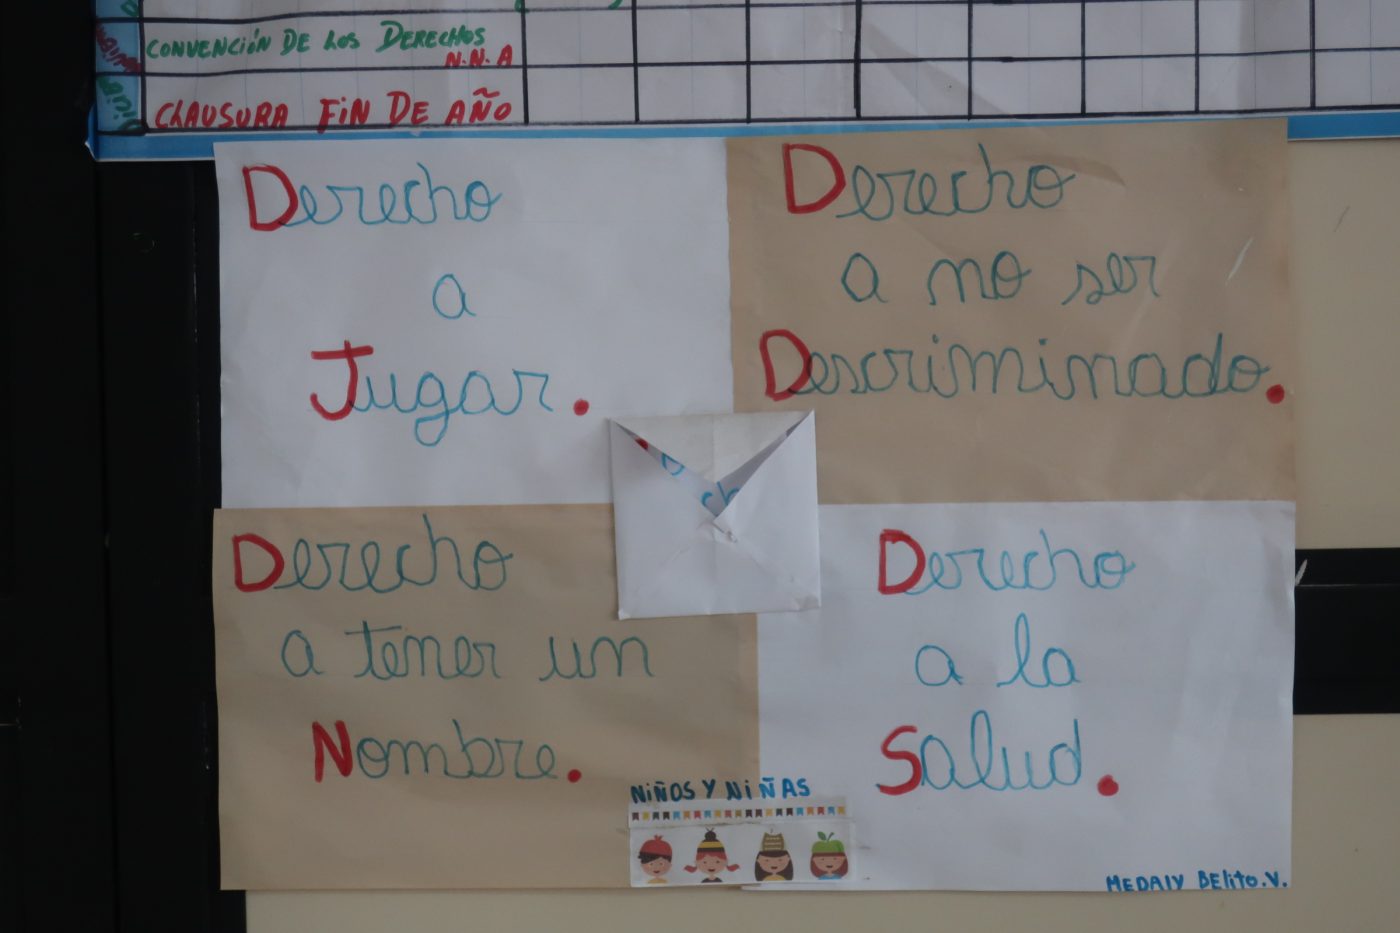 CONVENCIÓN DE LOS DERECHOS
N.N.A
CLAUSURA FIN DE AÑO
Derecho
a
Jugar.
Derecho
a no ser
Descriminado.
Derecho
a tener un
Nombre.
Derecho
a la
Salud.
NIÑOS Y NIÑAS
MEDALY BELITO.V.